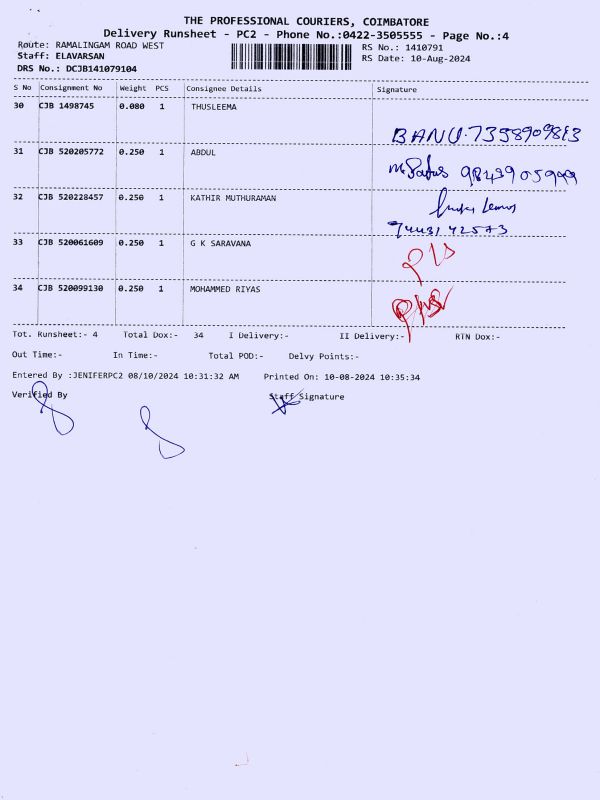 THE PROFESSIONAL COURIERS, COIMBATORE
Delivery Runsheet - PC2 - Phone No.:0422-3505555 - Page No.:4
Route: RAMALINGAM ROAD WEST RS No.: 1410791
Staff: ELAVARSAN RS Date: 10-Aug-2024
DRS No.: DCJB141079104
S No Consignment No Weight PCS Consignee Details Signature
30 CJB 1498745 0.080 1 THUSLEEMA
BANU. 7358909813
31 CJB 520205772 0.250 1 ABDUL
9843905999
32 CJB 520228457 0.250 1 KATHIR MUTHURAMAN
33 CJB 520061609 0.250 1 G K SARAVANA
34 CJB 520099130 0.250 1 MOHAMMED RIYAS
Tot. Runsheet:- 4 Total Dox:- 34 I Delivery:- II Delivery:- RTN Dox:-
Out Time:- In Time:- Total POD:- Delvy Points:-
Entered By :JENIFERPC2 08/10/2024 10:31:32 AM Printed On: 10-08-2024 10:35:34
Verified By Staff Signature